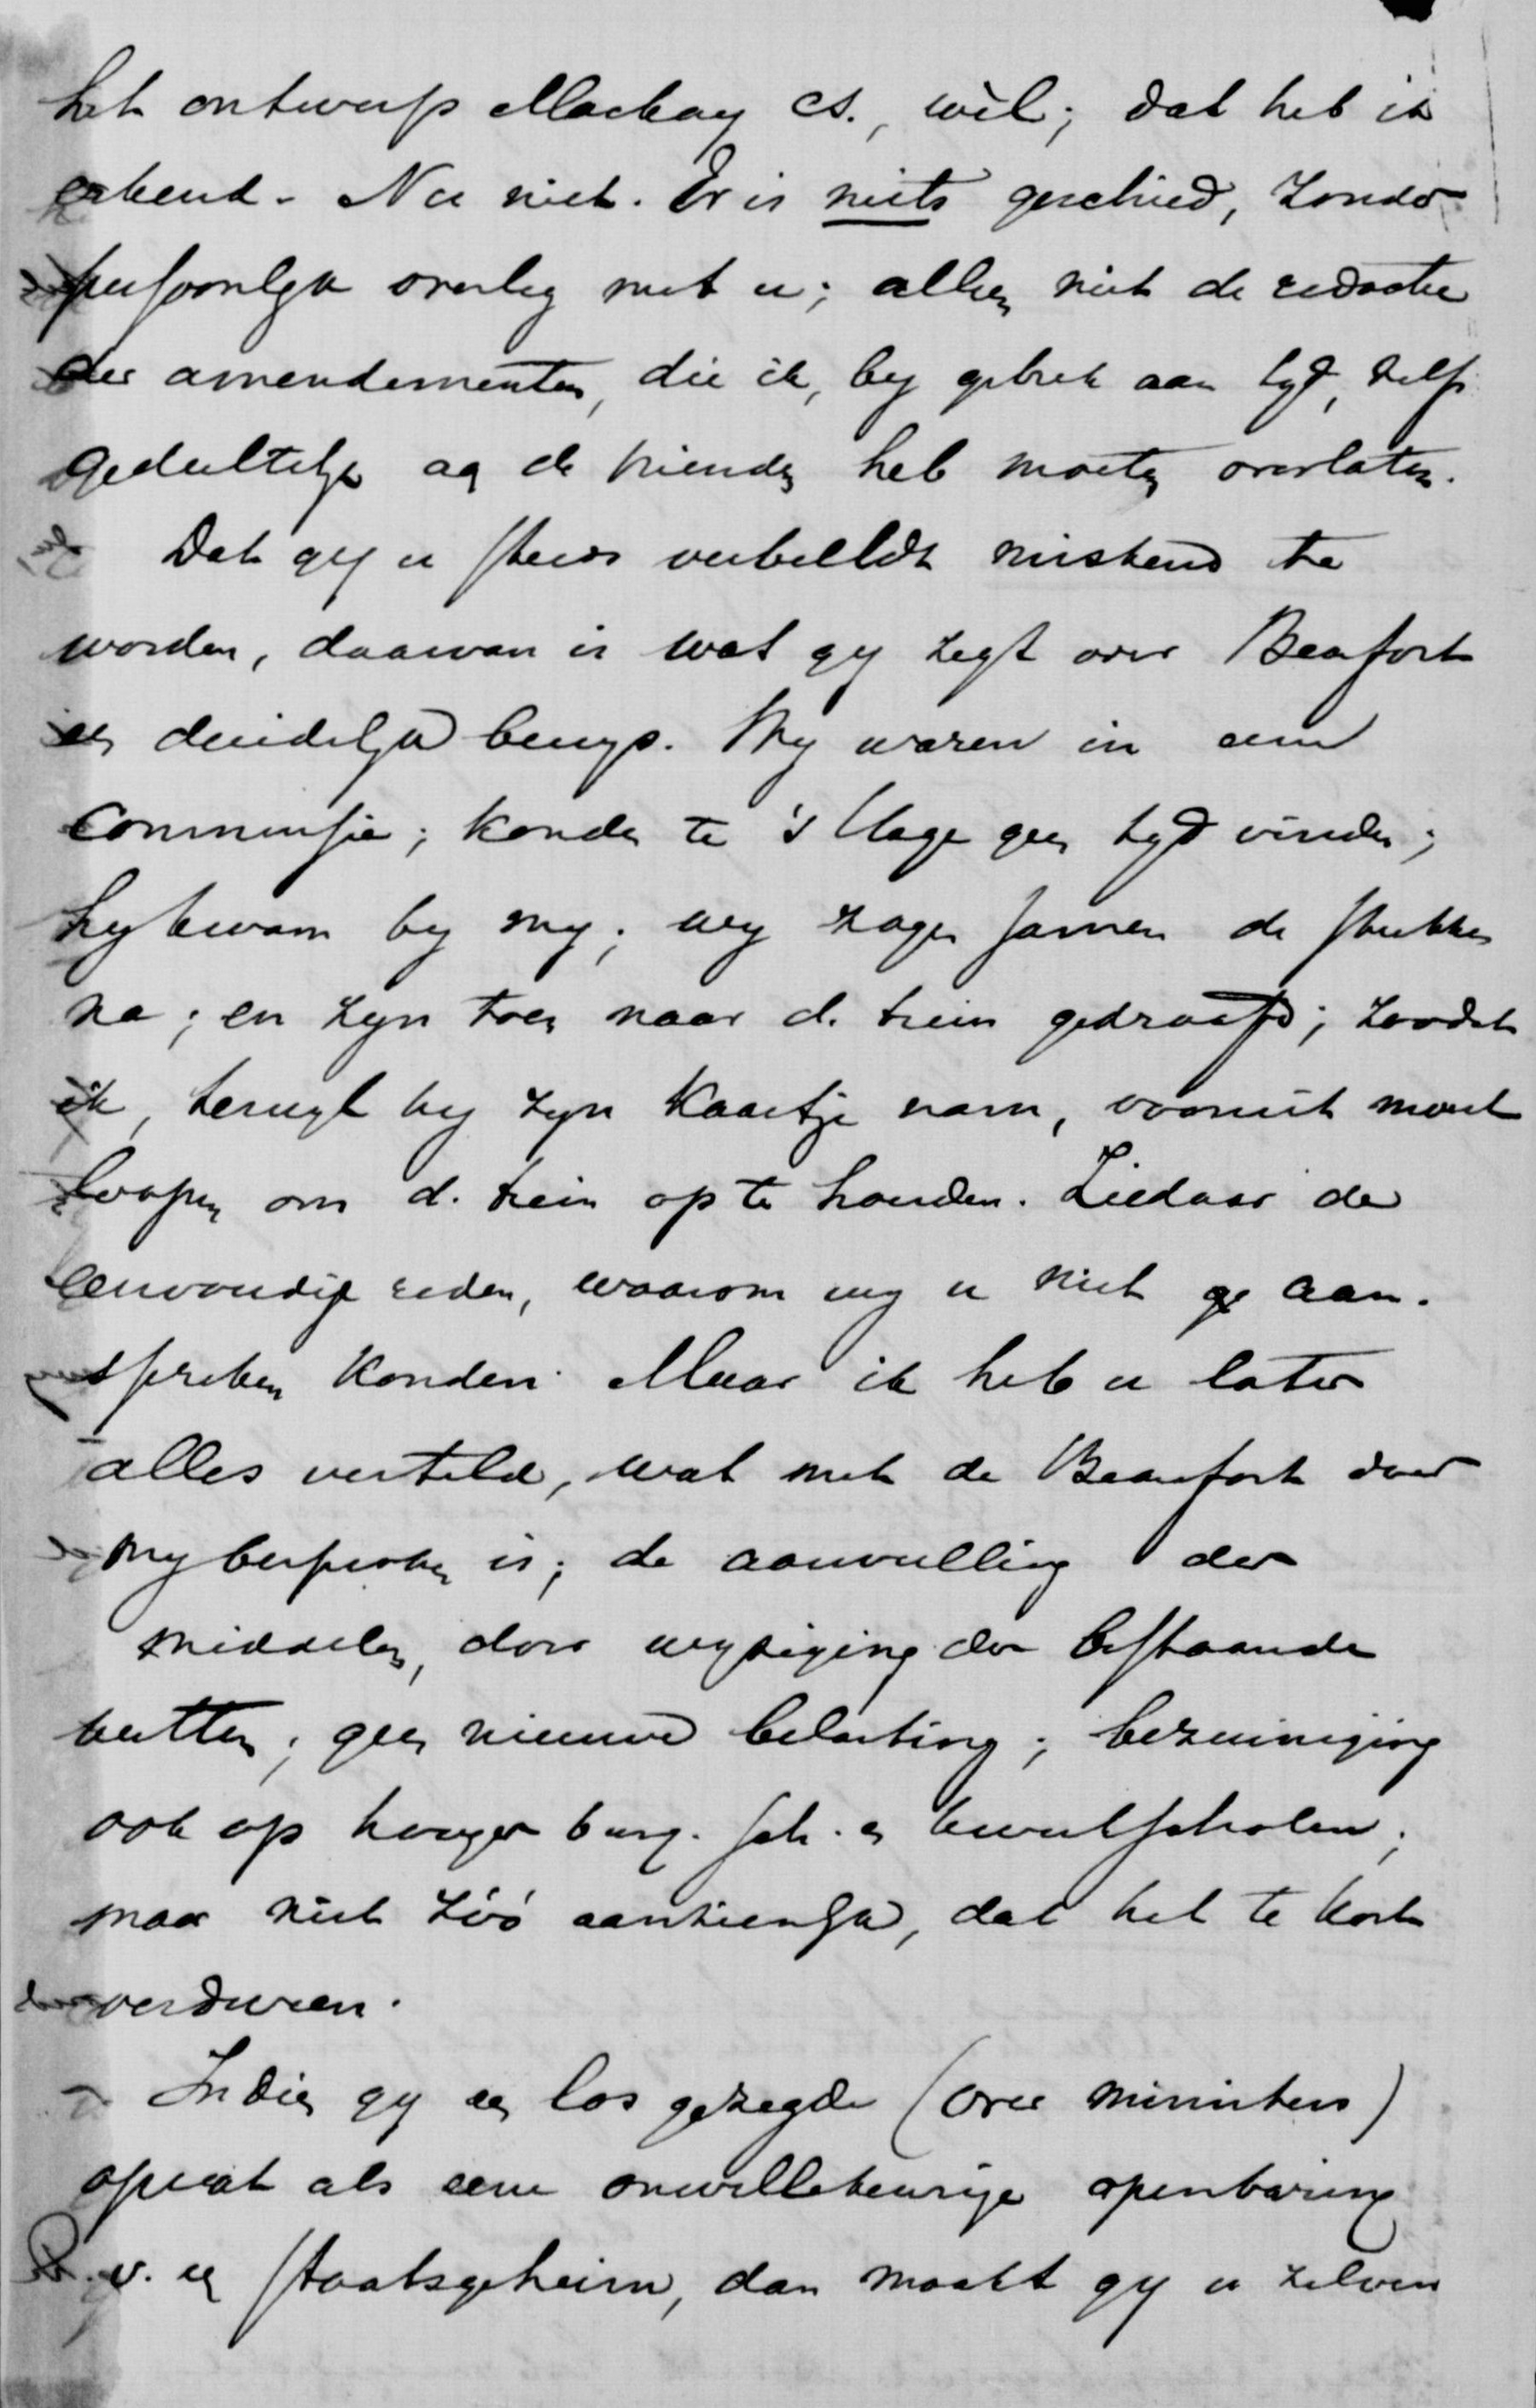 het ontwerp Mackay cs., wèl; dat heb ik
erkend. Nu niet. Er is niets geschied, zonder
persoonlyk overleg met u; alleen niet de redactie
der amendementen, die ik, by gebrek aan tyd, zelf
gedeeltelyk aan de vrienden heb moeten overlaten.
Dat gy u steeds verbeeldt miskend te
worden, daarvan is wat gy zegt over Beaufort
een duidelyk bewys. Wy waren in eene
commissie; konden te 's Hage geen tyd vinden;
hy kwam by my; wy zagen samen de stukken
na; en zyn toen naar d. trein gedraafd; zoodat
ik, terwyl hy zyn kaartje nam, vooruit moest
loopen om d. trein op te houden. Ziedaar de
eenvoudige reden, waarom wy u niet aan-
spreken konden. Maar ik heb u later
alles verteld, wat met de Beaufort door
my besproken is; de aanvulling der
middelen, door wyziging der bestaande
wetten; geen nieuwe belasting; bezuiniging
ook op hooger burg. sch. en kweekscholen;
maar niet zóó aanzienlyk, dat het te kort
verdween.
Indien gy een los gezegde (over ministers)
opvat als eene onwillekeurige openbaring
v. een staatsgeheim, dan maakt gy u zelven